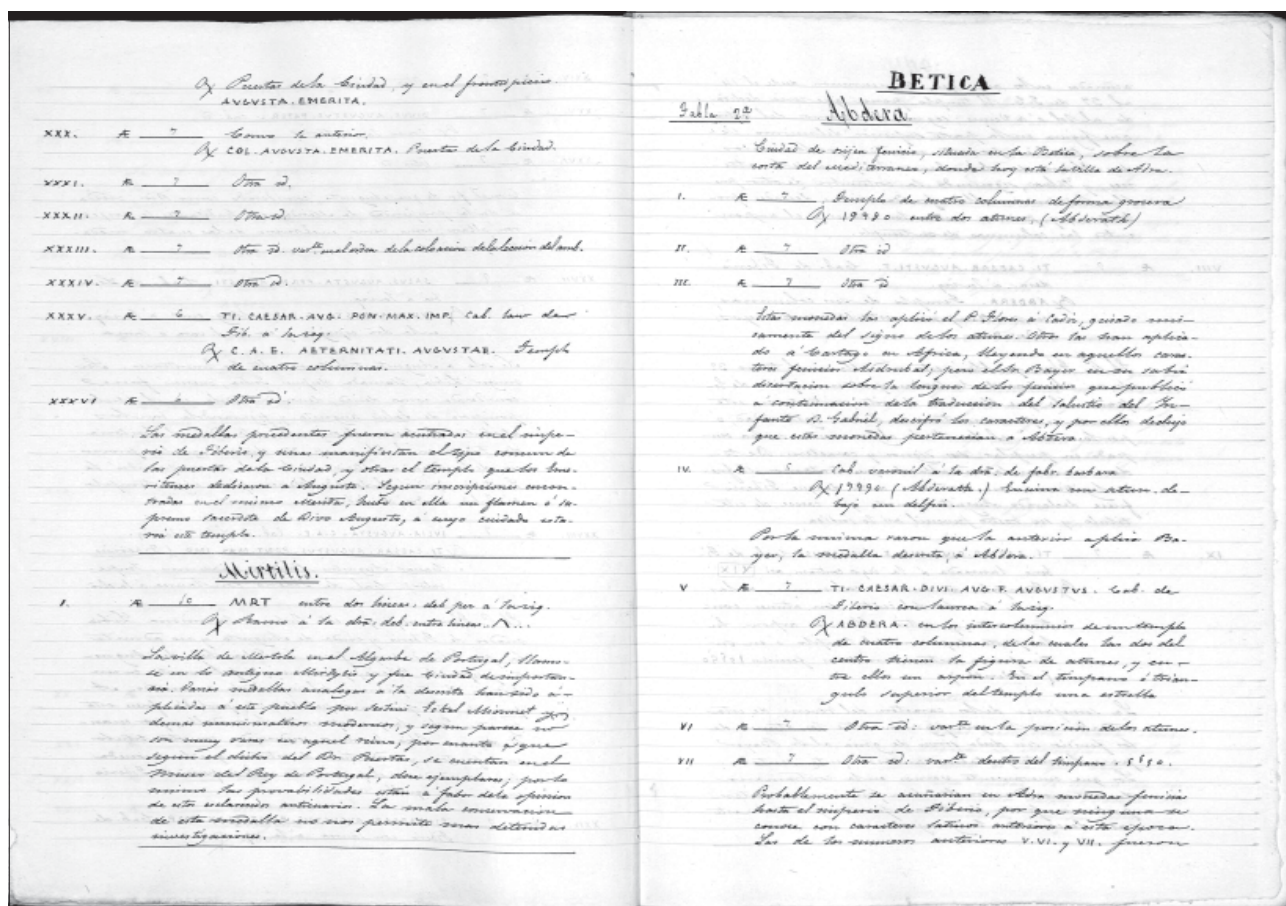 ℞ Puertas de la Ciudad, y en el frontispicio.
AVGVSTA. EMERITA.
XXX. Æ 7 Como la anterior.
℞ COL. AVGVSTA. EMERITA. Puertas de la Ciudad.
XXXI. Æ 7 Otra id.
XXXII. Æ 7 Otra id.
XXXIII. Æ 7 Otra id. var.te de la
XXXIV. Æ 7 Otra id.
XXXV. Æ 6 TI. CAESAR. AVG. PON. MAX. IMP. Cab. laur. de
Tib. á la izq.
℞ C. A. E. AETERNITATI. AVGVSTAE. Templo
de cuatro columnas.
XXXVI Æ 6 Otra id.
Las medallas precedentes fueron acuñadas en el impe-
rio de Tiberio, y unas manifiestan el tipo comun de
las puertas de la Ciudad, y otras el templo que los Eme-
ritenses dedicaron á Augusto. Segun inscripciones encon-
tradas en el mismo Merida, hubo en ella un flamen ó su-
premo sacerdote de Divo Augusto, á cuyo cuidado esta-
ria este templo.
Mirtilis.
I. Æ 10 MRT entre dos lineas, deb.
℞ á la dra. deb. entre lineas.
La villa de Mertola en el Algarbe de Portugal, llamo-
se en lo antiguo y fue Ciudad de importan-
cia. Varias medallas analogas á la descrita han sido a-
plicadas á este pueblo por Sestini Eckel Mionnet y
demás numismaticos modernos, y segun parece no
son muy raras en aquel reino, por cuanto á que
segun el dicho del Dr. Puertas, se cuentan en el
Museo del Rey de Portugal, doce ejemplares; por lo
mismo las provabilidades están á fabor de la opinion
de estos esclarecidos anticuarios. La mala conservacion
de esta medalla no nos permite mas detenidas
investigaciones.
BETICA
Tabla 2ª Abdera.
Ciudad de origen fenicio, situada en la Betica, sobre la
costa del mediterraneo, donde hoy está la villa de Adra.
I. Æ 7 Templo de cuatro columnas de forma grosera
℞ entre dos atunes, (Abderath)
II. Æ 7 Otra id
III. Æ 7 Otra id
Estas monedas las aplicó el P. Florez á Cadiz, guiado uni-
camente del signo de los atunes. Otros las han aplica-
do á Cartago en Africa, lleyendo en aquellos carac-
teres fenicios Asdrubal; pero el Sr. Bayer en su sabia
disertacion sobre la lengua de los fenicios que publicó
á continuacion de la traduccion del Salustio del In-
fante D. Gabriel, descifró los caracteres, y por ellos dedujo
que estas monedas pertenecian á Abdera.
IV. Æ 5 Cab. varonil á la dra. de fabr. barbara
℞ (Abderath.) Encima un atun. de-
bajo un delfin.
Por la misma razon que la anterior aplicó Ba-
yer, la medalla descrita, á Abdera.
V Æ 7 TI. CAESAR. DIVI. AVG. F. AVGVSTVS. Cab. de
Tiberio con laurea á la izq.
℞ ABDERA. en los intercolumnios de un templo
de cuatro columnas, de las cuales las dos del
centro tienen la figura de atunes, y en-
tre ellos un arpon. En el timpano ó trian-
gulo superior del templo una estrella
VI Æ 7 Otra id: var.te en la posicion de los atunes.
VII Æ 7 Otra id: var.te dentro del timpano.
Probablemente se acuñarian en Adra monedas fenicias
hasta el imperio de Tiberio, por que ninguna se
conoce con caracteres latinos anteriores á esta epoca.
Las de los numeros anteriores V. VI. y VII. fueron